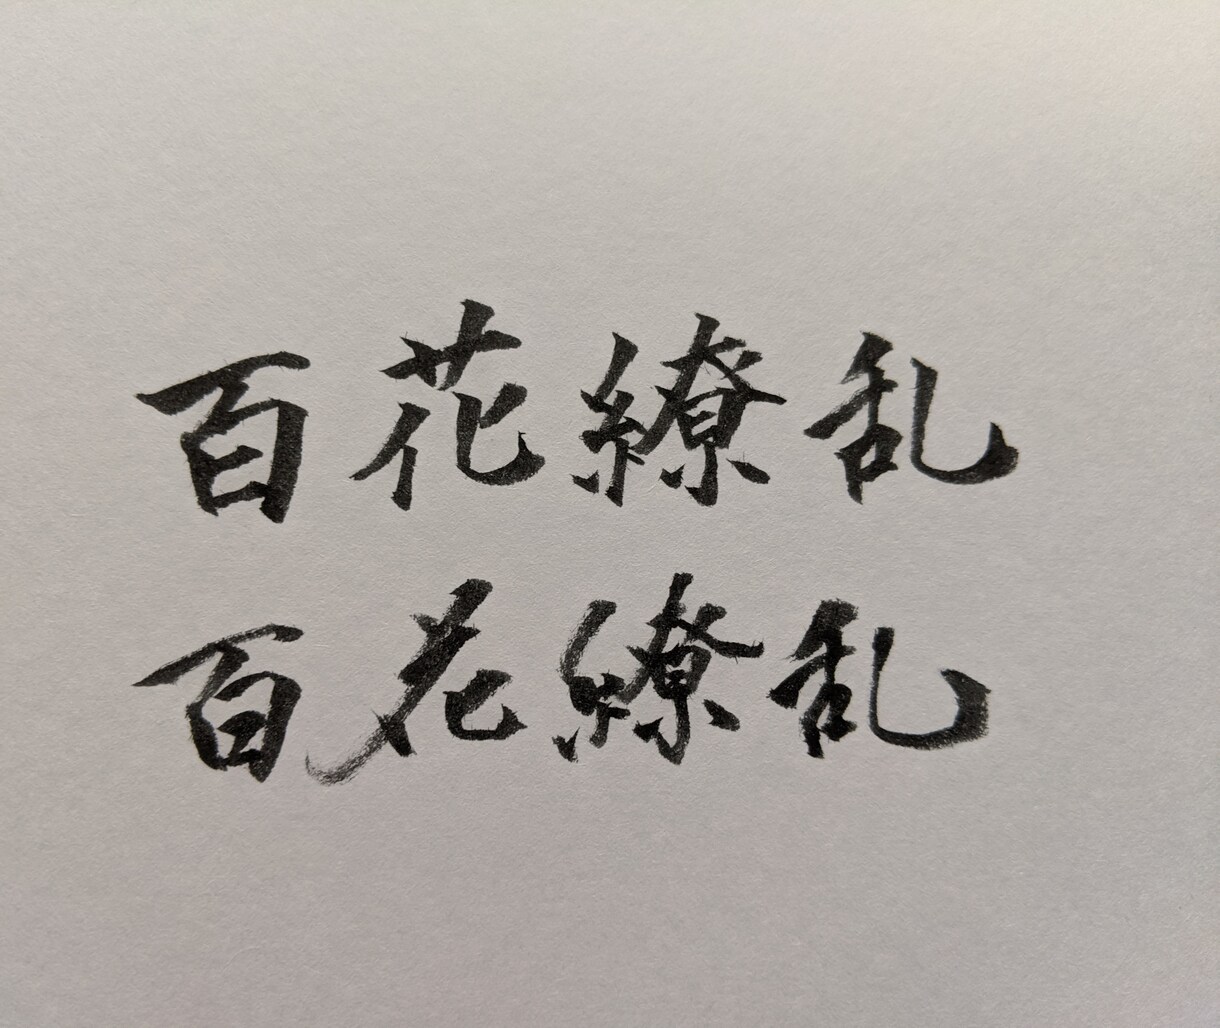 百花繚乱
百花繚乱